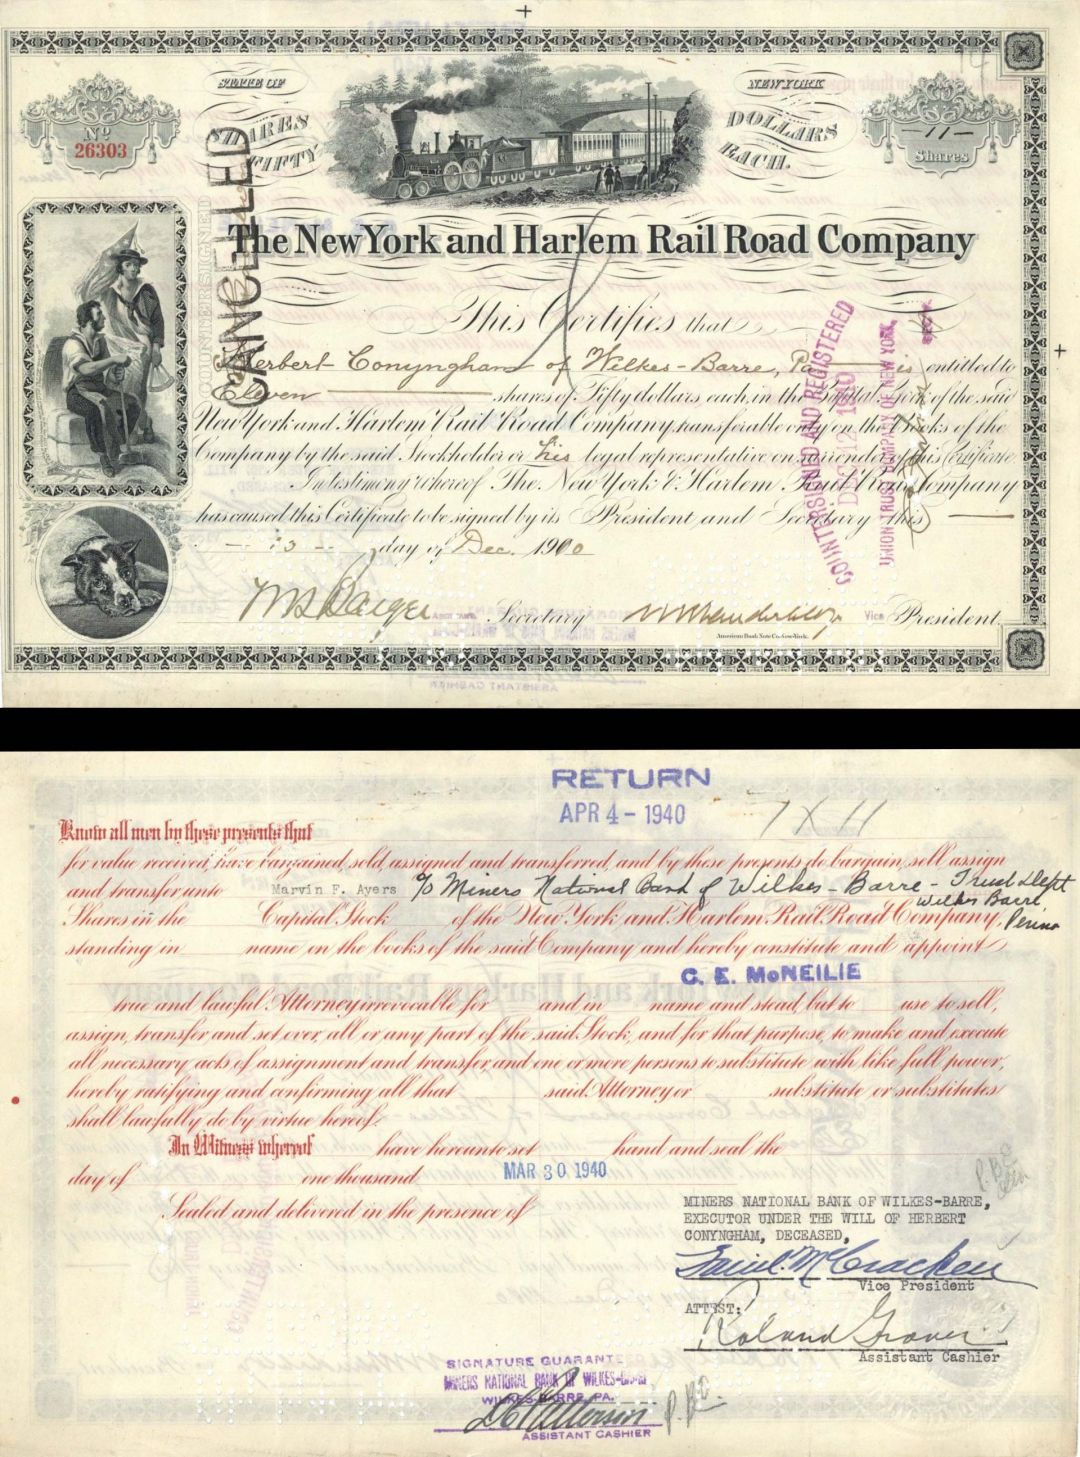 STATE OF
NEW YORK
SHARES
FIFTY
DOLLARS
EACH.
No
26303
-11-
Shares
CANCELLED
COUNTERSIGNED
The New York and Harlem Rail Road Company
This Certifies that
Herbert Conyngham of Wilkes-Barre, Pa is entitled to
Eleven shares of Fifty dollars each, in the Capital Stock of the said
New York and Harlem Rail Road Company, transferable only on the Books of the
Company by the said Stockholder or his legal representative on surrender of this Certificate
In testimony whereof The New York & Harlem Rail Road Company
has caused this Certificate to be signed by its President and Secretary this
-13- day of Dec. 1900
Secretary
Vice President.
American Bank Note Co. New York.
COUNTERSIGNED AND REGISTERED
DEC 12 1900
UNION TRUST COMPANY OF NEW YORK
RETURN
APR 4 - 1940
7 X 11
Know all men by these presents that
for value received, have bargained, sold, assigned and transferred, and by these presents do bargain, sell assign
and transfer unto Marvin F. Ayers c/o Miners National Bank of Wilkes-Barre - Trust Dept
Wilkes Barre
Shares in the Capital Stock of the New York and Harlem Rail Road Company, Penna
standing in name on the books of the said Company and hereby constitute and appoint
C. E. McNEILIE
true and lawful Attorney irrevocable for and in name and stead, but to use to sell,
assign, transfer and set over, all or any part of the said Stock, and for that purpose, to make and execute
all necessary acts of assignment and transfer, and one or more persons to substitute with like full power,
hereby ratifying and confirming all that said Attorney or substitute or substitutes
shall lawfully do by virtue hereof.
In Witness whereof have hereunto set hand and seal the
day of one thousand MAR 30 1940
Sealed and delivered in the presence of
MINERS NATIONAL BANK OF WILKES-BARRE,
EXECUTOR UNDER THE WILL OF HERBERT
CONYNGHAM, DECEASED,
Vice President
ATTEST:
Roland Graves
Assistant Cashier
SIGNATURE GUARANTEED
MINERS NATIONAL BANK OF WILKES-BARRE
WILKES-BARRE, PA.
ASSISTANT CASHIER